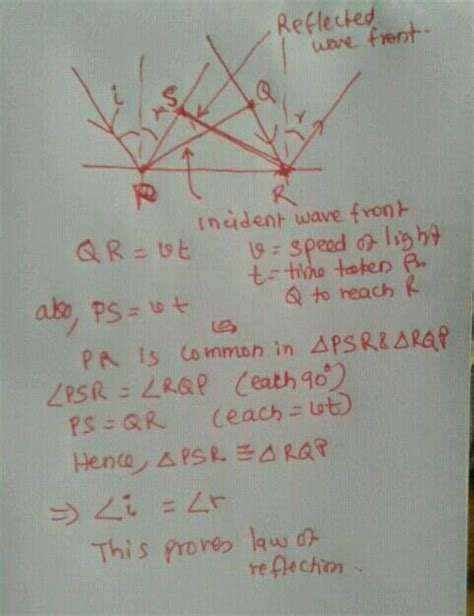 Reflected
wave front.
i r S Q r
P R
incident wave front
QR = vt v = speed of light
t = time taken for
Q to reach R
also, PS = vt
PR is common in △PSR & △RQP
∠PSR = ∠RQP (each 90°)
PS = QR (each = vt)
Hence, △PSR ≅ △RQP
⇒ ∠i = ∠r
This proves law of
reflection.